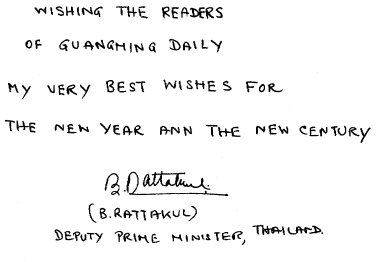 WISHING THE READERS
OF GUANGMING DAILY
MY VERY BEST WISHES FOR
THE NEW YEAR ANN THE NEW CENTURY
B. Rattakul.
(B. RATTAKUL)
DEPUTY PRIME MINISTER, THAILAND.